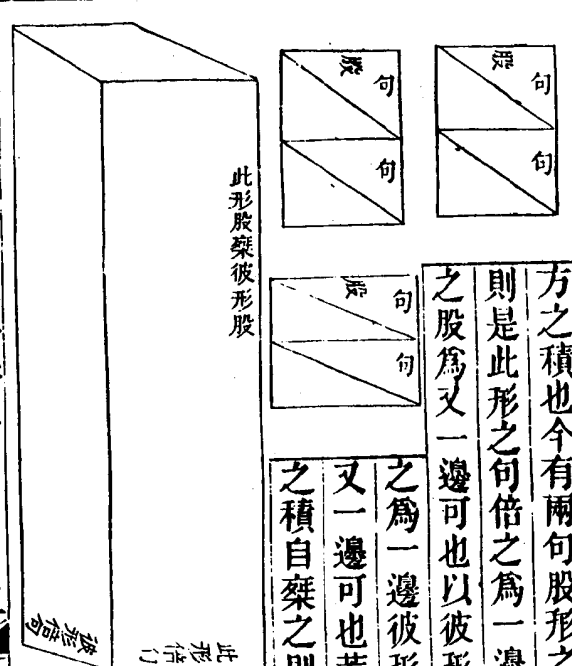 方之積也今有兩句股形之
則是此形之句倍之爲一邊
之股爲又一邊可也以彼形
之爲一邊彼形
又一邊可也若
之積自乘之則
股
句
句
股
句
句
股
句
句
此形股乘彼形股
此形倍句
彼形倍句